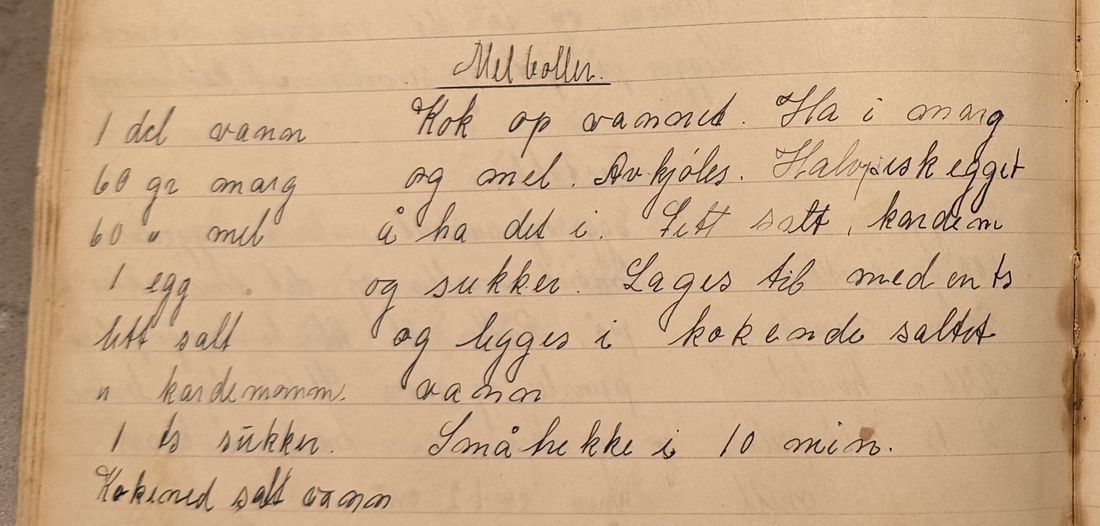 Melboller.
1 del vann
60 gr marg
60 " mel
1 egg
litt salt
" kardemomm.
1 ts sukker.
Kokened salt vann
Kok op vannet. Ha i marg
og mel. Avkjøles. Halvpisk egget
å ha det i. Litt salt, kardem
og sukker. Lages til med en ts
og legges i kokende saltet
vann
Småhekke i 10 min.